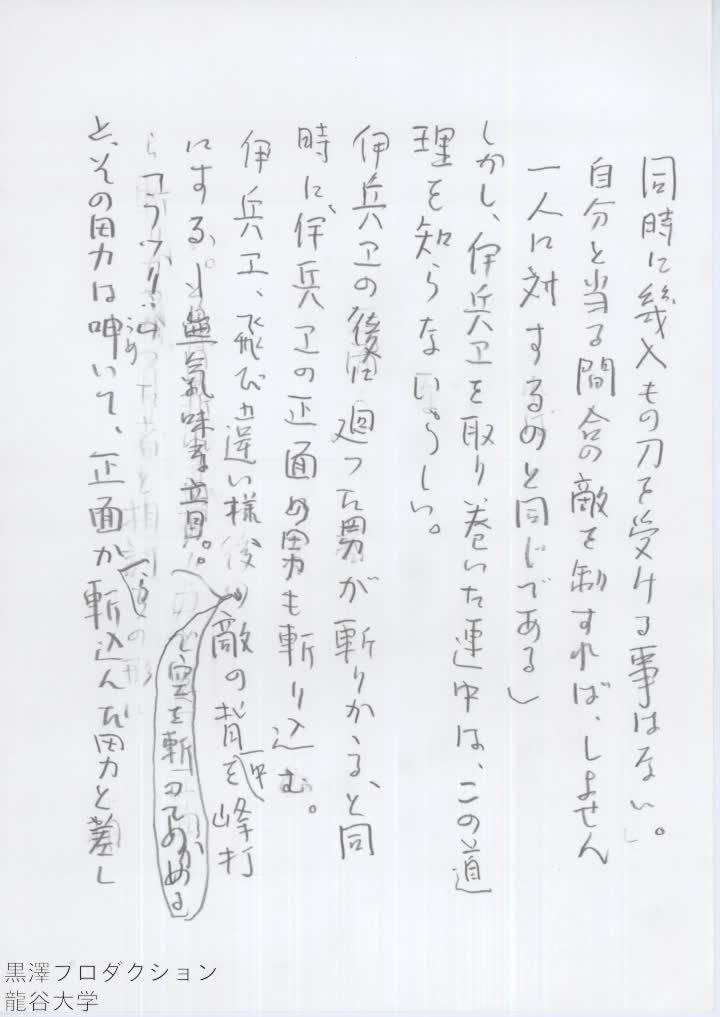 同時に幾人もの刀を受ける事はない。
自分と当る間合の敵を制すれば、しょせん
一人に対するのと同じである」
しかし、伊兵ヱを取り巻いた連中は、この道
理を知らないらしい。
伊兵ヱの後に廻った男が斬りかゝる、と同
時に、伊兵ヱの正面の男も斬り込む。
伊兵ヱ、飛び違い様、後の敵の背中を峰打
にする。無気味な音。
で空を斬ってのめる
「うゝっ！」
と、その男は呻いて、正面から斬込んだ男と差し
うめ
黒澤プロダクション
龍谷大学